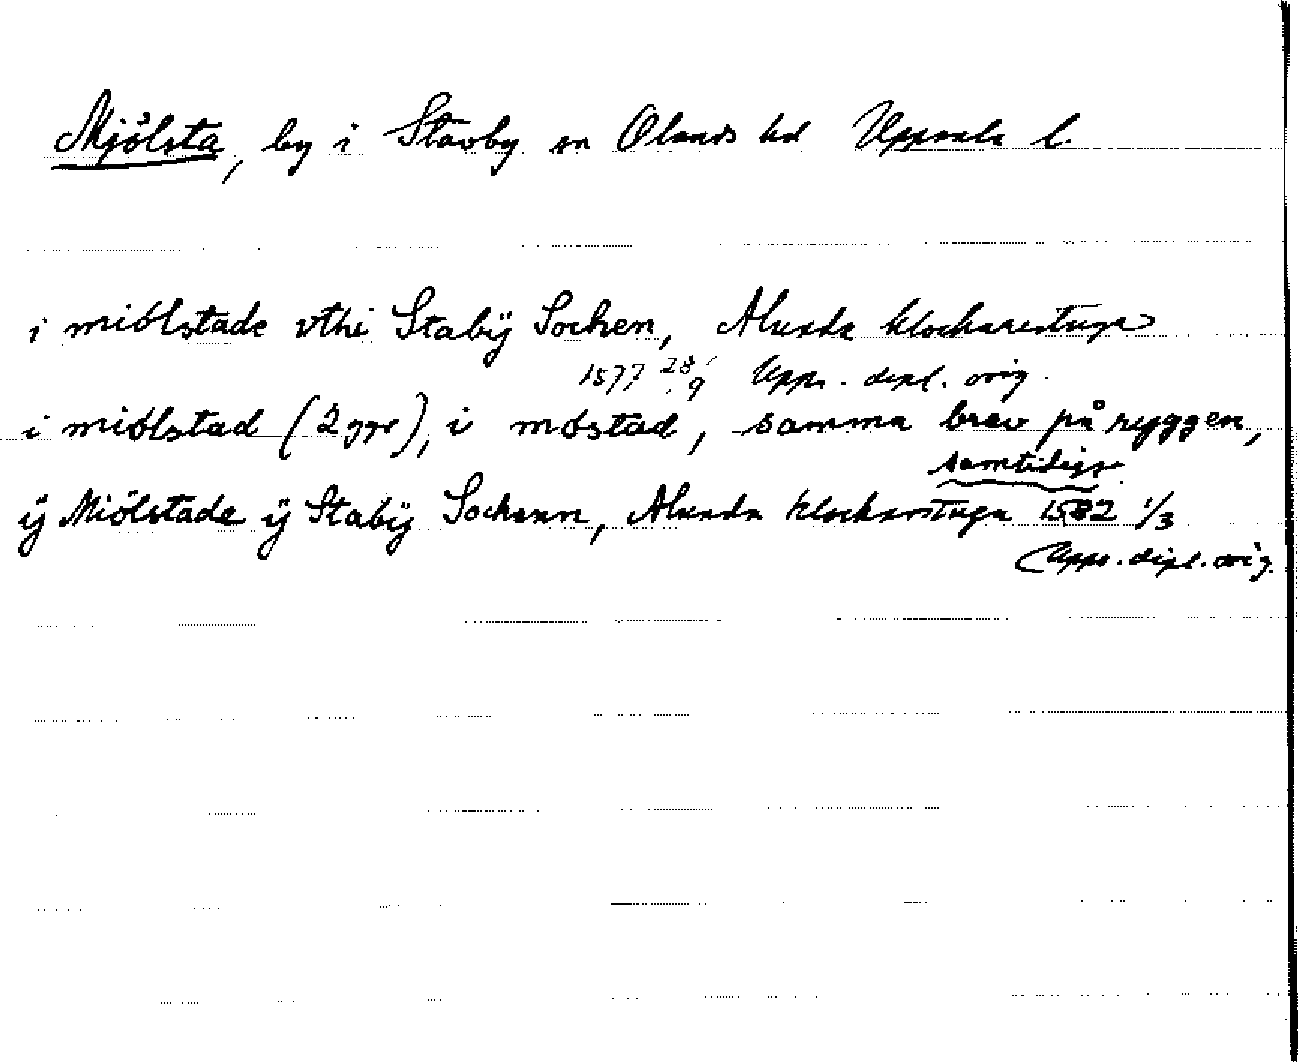 Mjölsta, by i Stavby sn Olands hd Uppsala l.
i miólstade vthi Stabÿ Socken, Alunda klockarestuga
1577 28/9 Upps. dipl. orig.
i miólstad (2 ggr), i móstad, samma brev på ryggen,
samtidigt
ÿ Miölstade ÿ Stabÿ Sockenn, Alunda klockarstuga 1582 1/3
Upps. dipl. orig.